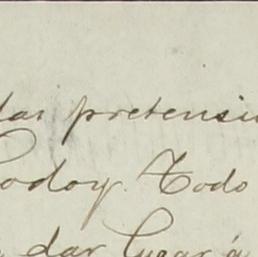 las pretensi
Godoy. Todo
dar lugar á